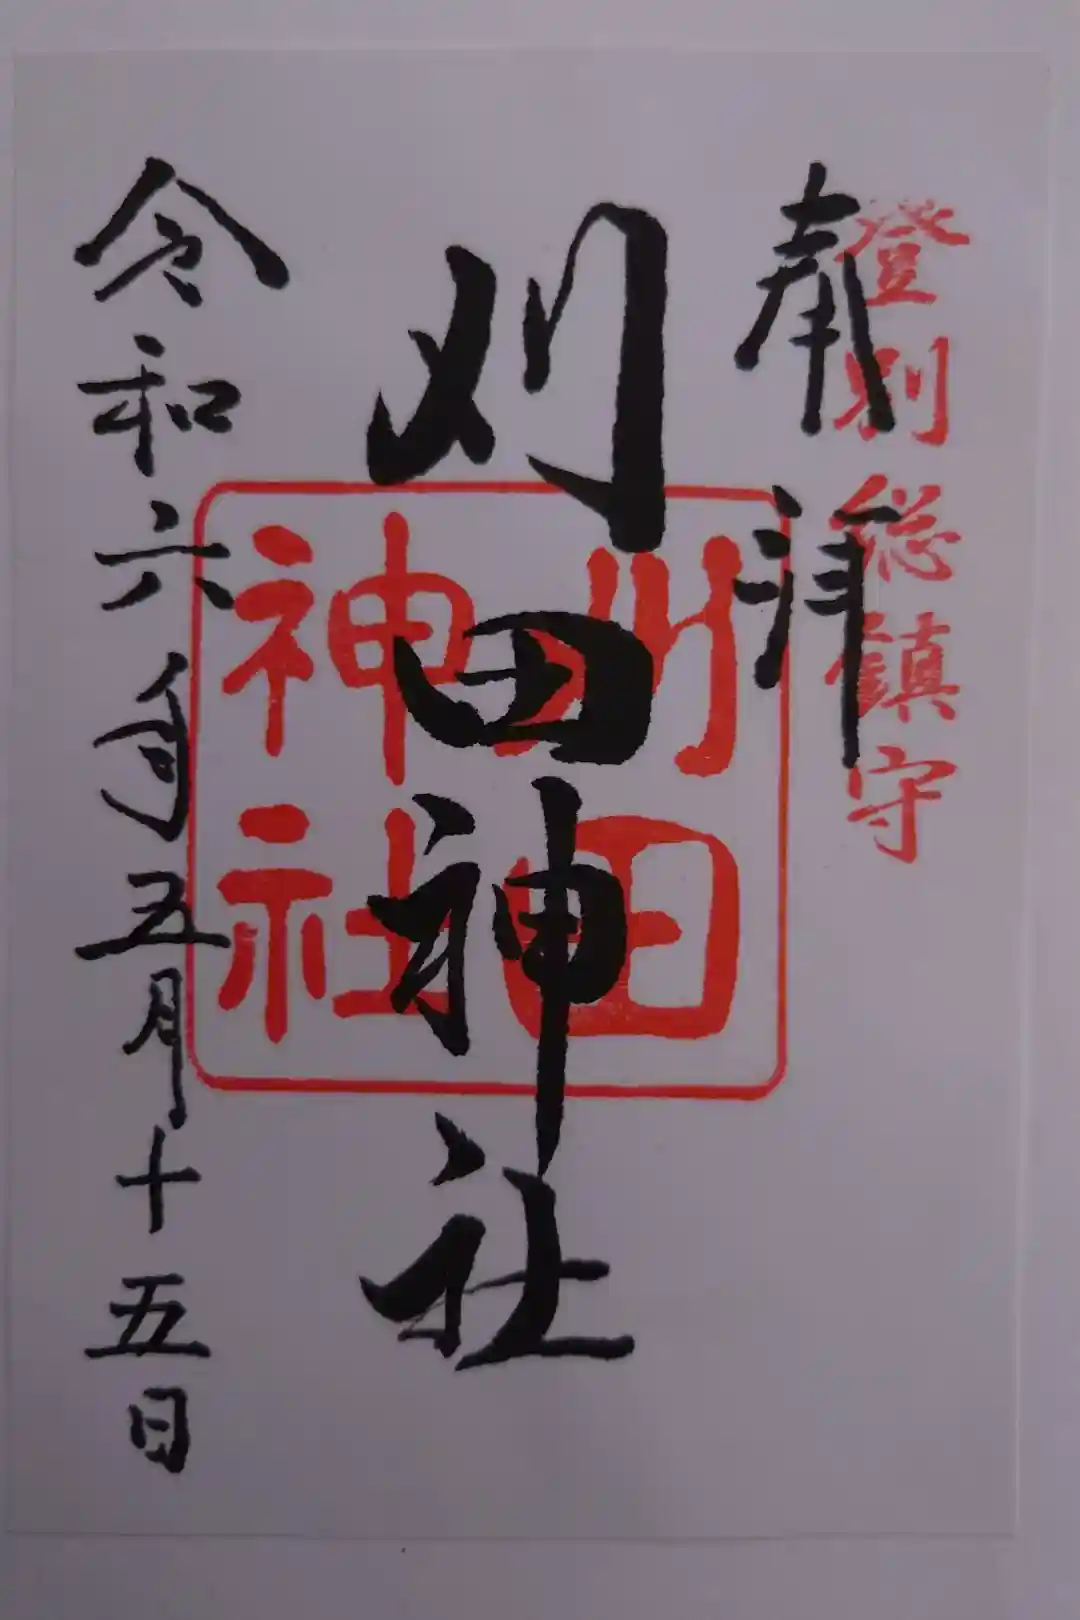 登別総鎮守
奉拝
刈田神社
刈田
神社
令和六年五月十五日